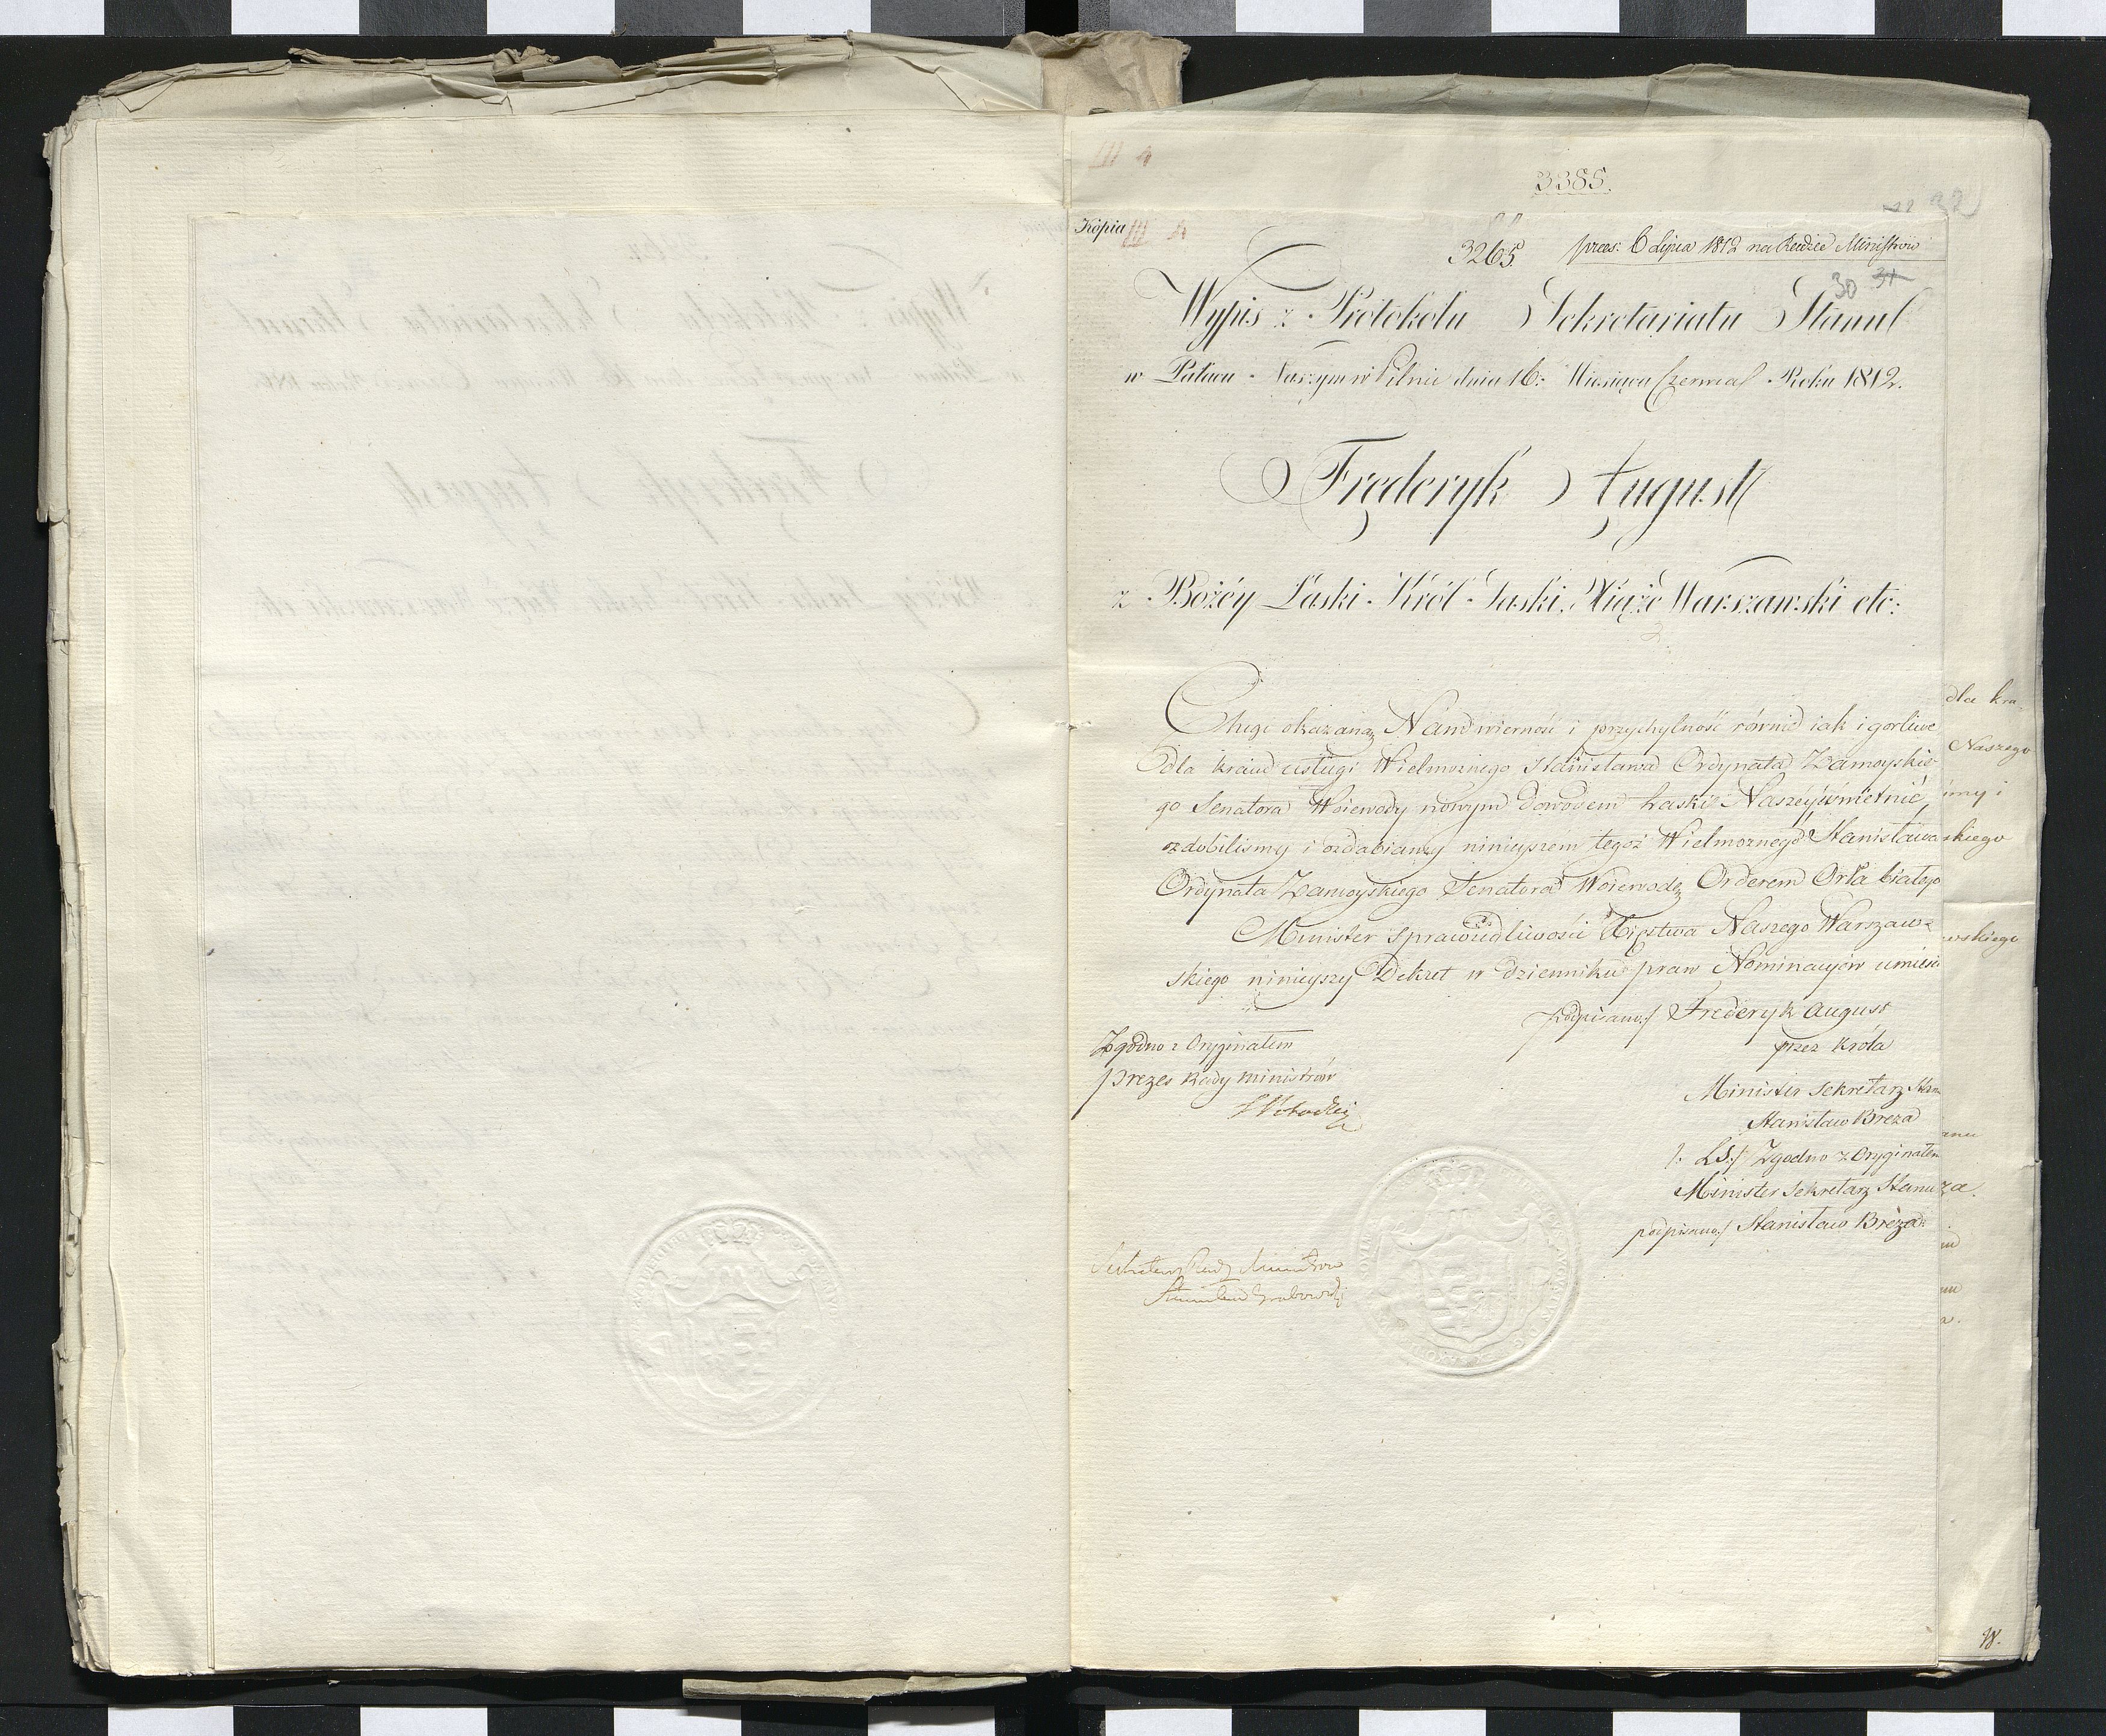 3385.
Kopia III 4
3265. præs: 6 Lipca 1812 na Radzie Ministrów
32
30 31
Wypis z Protokołu Sekretariatu Stanu
w Pałacu Naszym w Pilnic dnia 16: Miesiąca Czerwca Roku 1812.
Fryderyk August
z Bożéy Łaski Król Saski, Xiąże Warszawski etc:
Chcąc okazaną Nam wierność i przychylność równie iak i gorliwe
dla kraiu usługi Wielmożnego Stanisława Ordynata Zamoyskie-
go Senatora Woiewody nowym dowodem Łaski Naszéy uświetnić,
ozdobiliśmy i ozdabiamy ninieyszem tegoż Wielmożnego Stanisława
Ordynata Zamoyskiego Senatora Woiewodę Orderem Orła białego
Minister Sprawiedliwości Xięstwa Naszego Warszaw-
skiego ninieyszy Dekret w dzienniku praw Nominacyów umieści
podpisano:/ Fryderyk August
przez Króla
Minister Sekretarz Stanu
Stanisław Breza
/: LS:/ Zgodno z Oryginałem
Minister Sekretarz Stanu
podpisano:/ Stanisław Breza
Zgodno z Oryginałem
Prezes Rady Ministrów
Sekretarz Rady Ministrów
Stanisław Grabowski
dla kra-
Naszego
imy i
skiego
wskiego
anu
za.